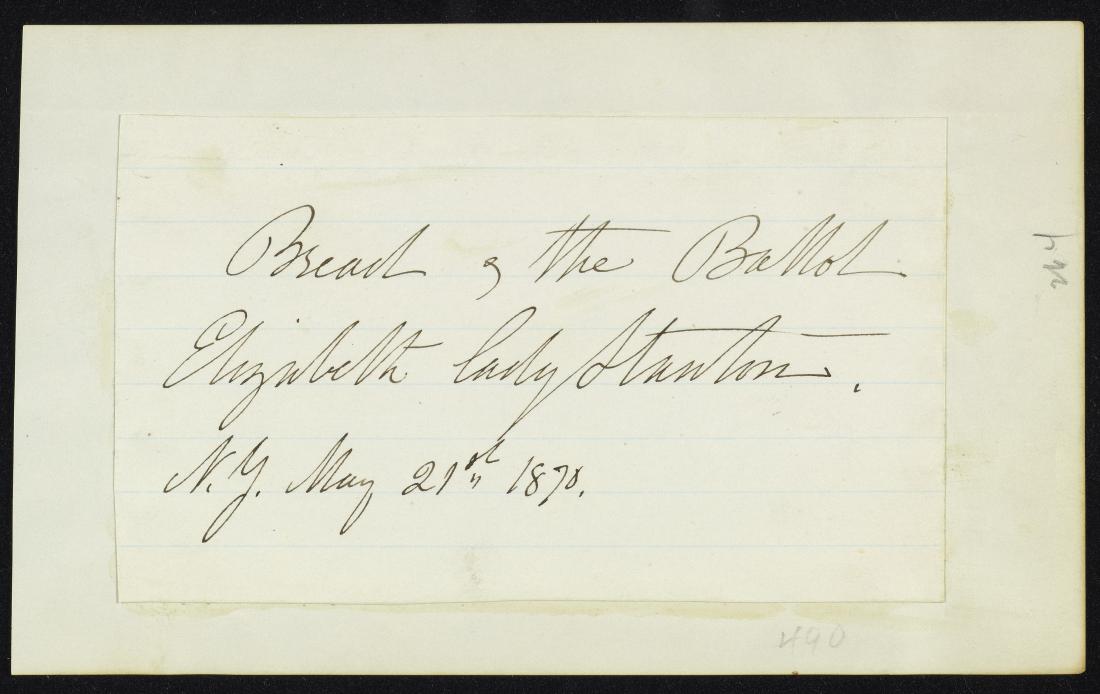 Bread & the Ballot
Elizabeth Cady Stanton.
N.Y. May 21st 1870.
490